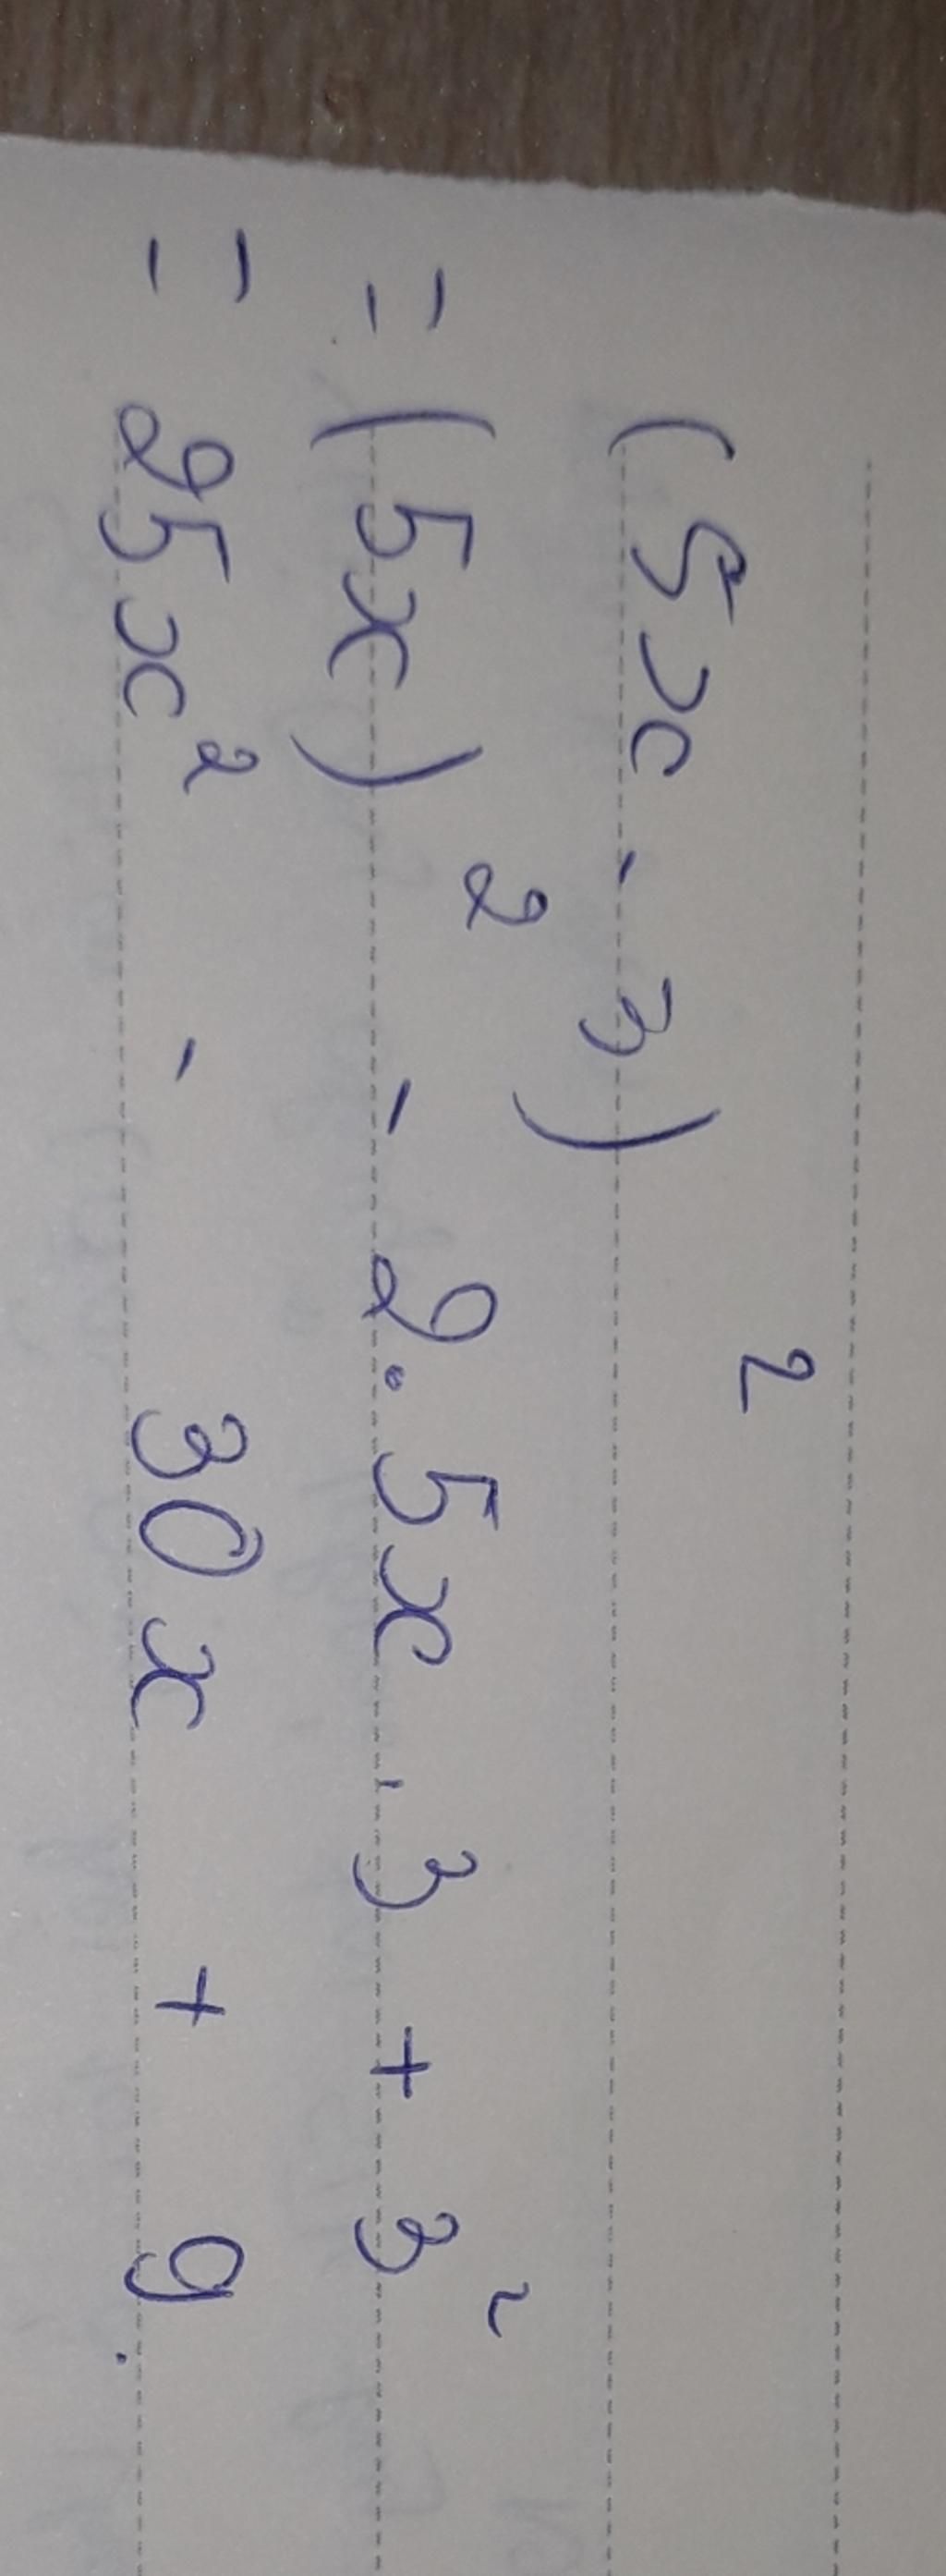 (5x - 3)²
= (5x)² - 2.5x.3 + 3²
= 25x² - 30x + 9.